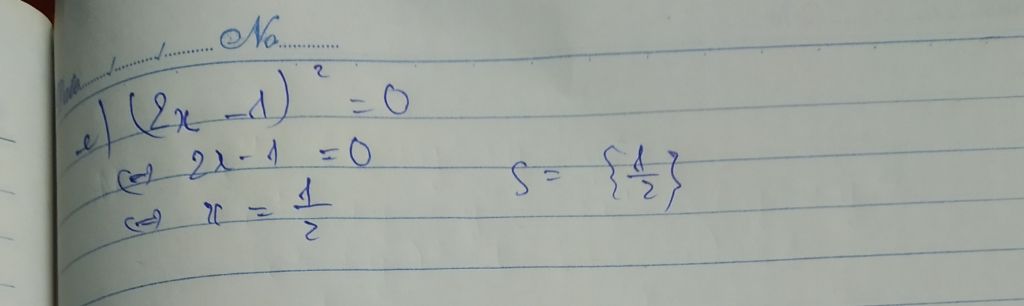 Date ....../....../......... No ............
e) (2x - 1)² = 0
⇔ 2x - 1 = 0
⇔ x = 1/2
S = {1/2}